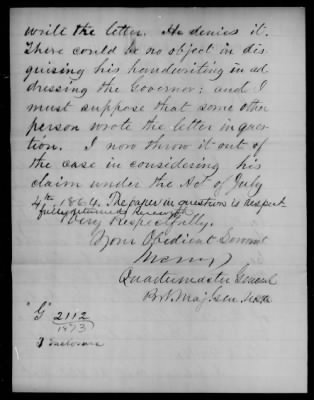 write the letter. He denies it.
There could be no object in dis-
guising his handwriting in ad-
dressing the Governor; and I
must suppose that some other
person wrote the letter in ques-
tion. I now throw it out of
the case in considering his
claim under the Act of July
4th 1864. The paper in question is respect
fully returned herewith
Very Respectfully.
Your Obedient Servant
Quartermaster General
Bvt. Maj. Gen. U.S.A.
"G" 2112
1873
Enclosure